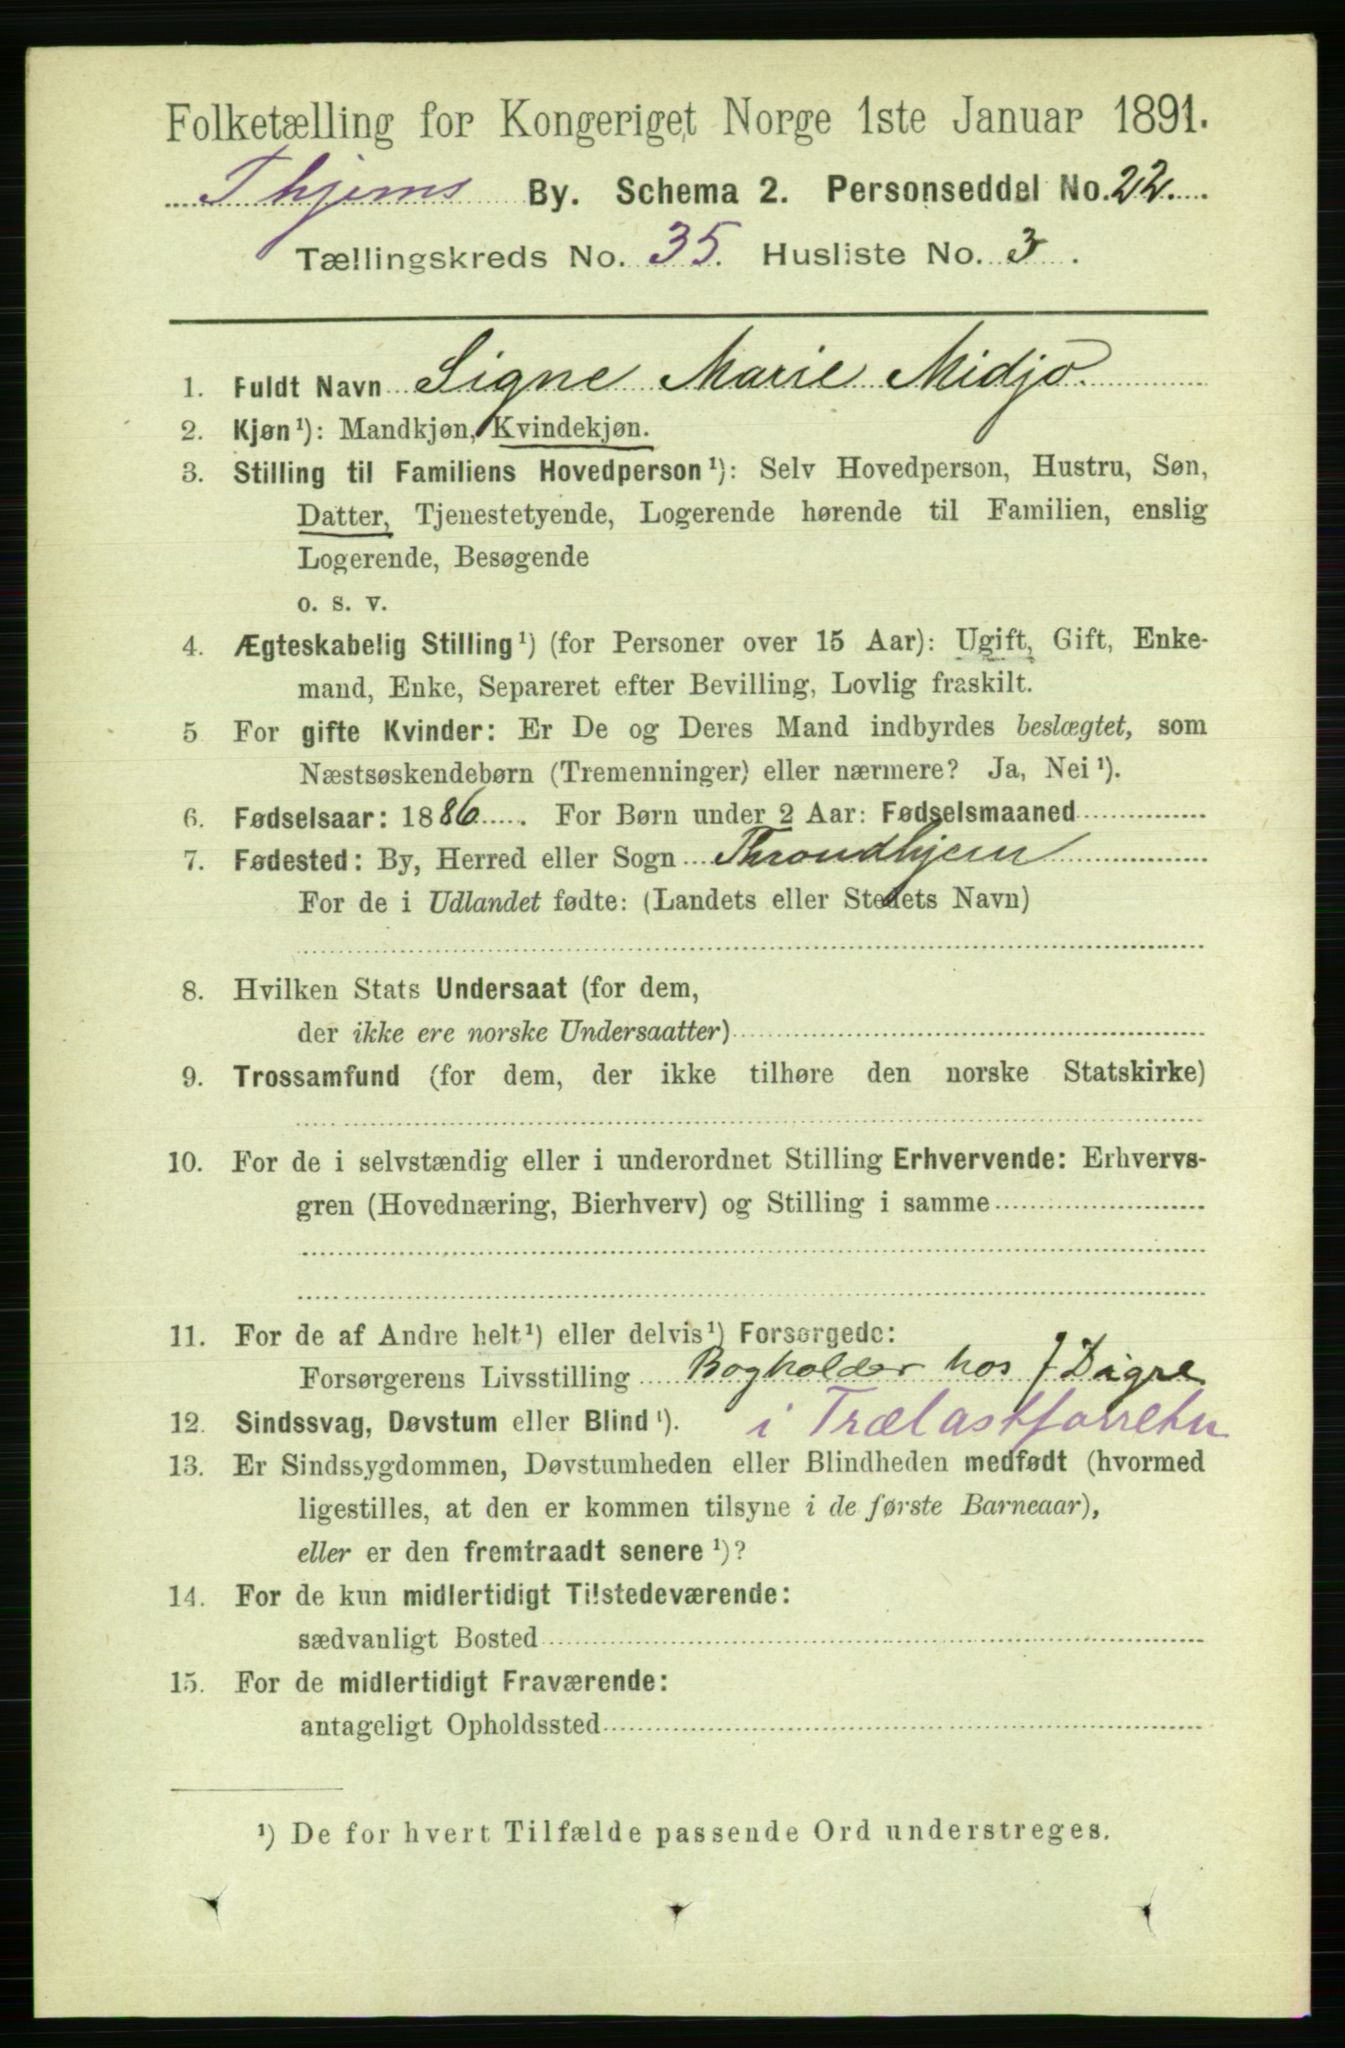 Folketælling for Kongeriget Norge 1ste Januar 1891.
Thjems By. Schema 2. Personseddel No. 22.
Tællingskreds No. 35. Husliste No. 3.
1. Fuldt Navn Signe Marie Midjo.
2. Kjøn¹): Mandkjøn, Kvindekjøn.
3. Stilling til Familiens Hovedperson¹): Selv Hovedperson, Hustru, Søn,
Datter, Tjenestetyende, Logerende hørende til Familien, enslig
Logerende, Besøgende
o. s. v.
4. Ægteskabelig Stilling¹) (for Personer over 15 Aar): Ugift, Gift, Enke-
mand, Enke, Separeret efter Bevilling, Lovlig fraskilt.
5 For gifte Kvinder: Er De og Deres Mand indbyrdes beslægtet, som
Næstsøskendebørn (Tremenninger) eller nærmere? Ja, Nei¹).
6. Fødselsaar: 1886. For Børn under 2 Aar: Fødselsmaaned
7. Fødested: By, Herred eller Sogn Throndhjem
For de i Udlandet fødte: (Landets eller Stedets Navn)
8. Hvilken Stats Undersaat (for dem,
der ikke ere norske Undersaatter)
9. Trossamfund (for dem, der ikke tilhøre den norske Statskirke)
10. For de i selvstændig eller i underordnet Stilling Erhvervende: Erhvervs-
gren (Hovednæring, Bierhverv) og Stilling i samme
11. For de af Andre helt¹) eller delvis¹) Forsørgede:
Forsørgerens Livsstilling Bogholder hos J Digre
12. Sindssvag, Døvstum eller Blind¹). i Trælastforretn
13. Er Sindssygdommen, Døvstumheden eller Blindheden medfødt (hvormed
ligestilles, at den er kommen tilsyne i de første Barneaar),
eller er den fremtraadt senere¹)?
14. For de kun midlertidigt Tilstedeværende:
sædvanligt Bosted
15. For de midlertidigt Fraværende:
antageligt Opholdssted
¹) De for hvert Tilfælde passende Ord understreges.